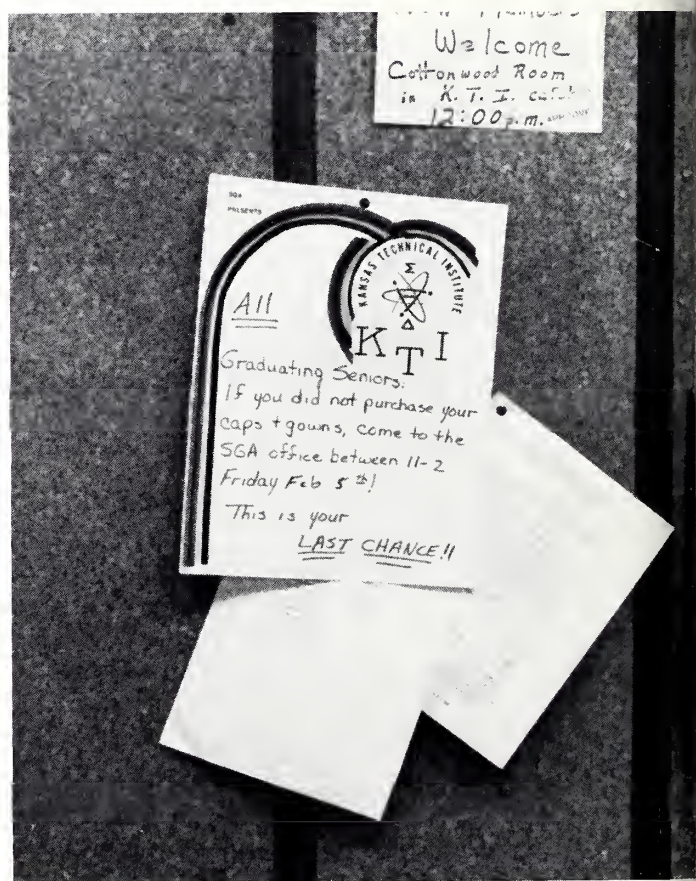 Welcome
Cottonwood Room
in K.T.I.
12:00 p.m.
SGA
PRESENTS
KANSAS TECHNICAL INSTITUTE
K T I
All
Graduating Seniors:
If you did not purchase your
caps + gowns, come to the
SGA office between 11-2
Friday Feb 5th!
This is your
LAST CHANCE!!